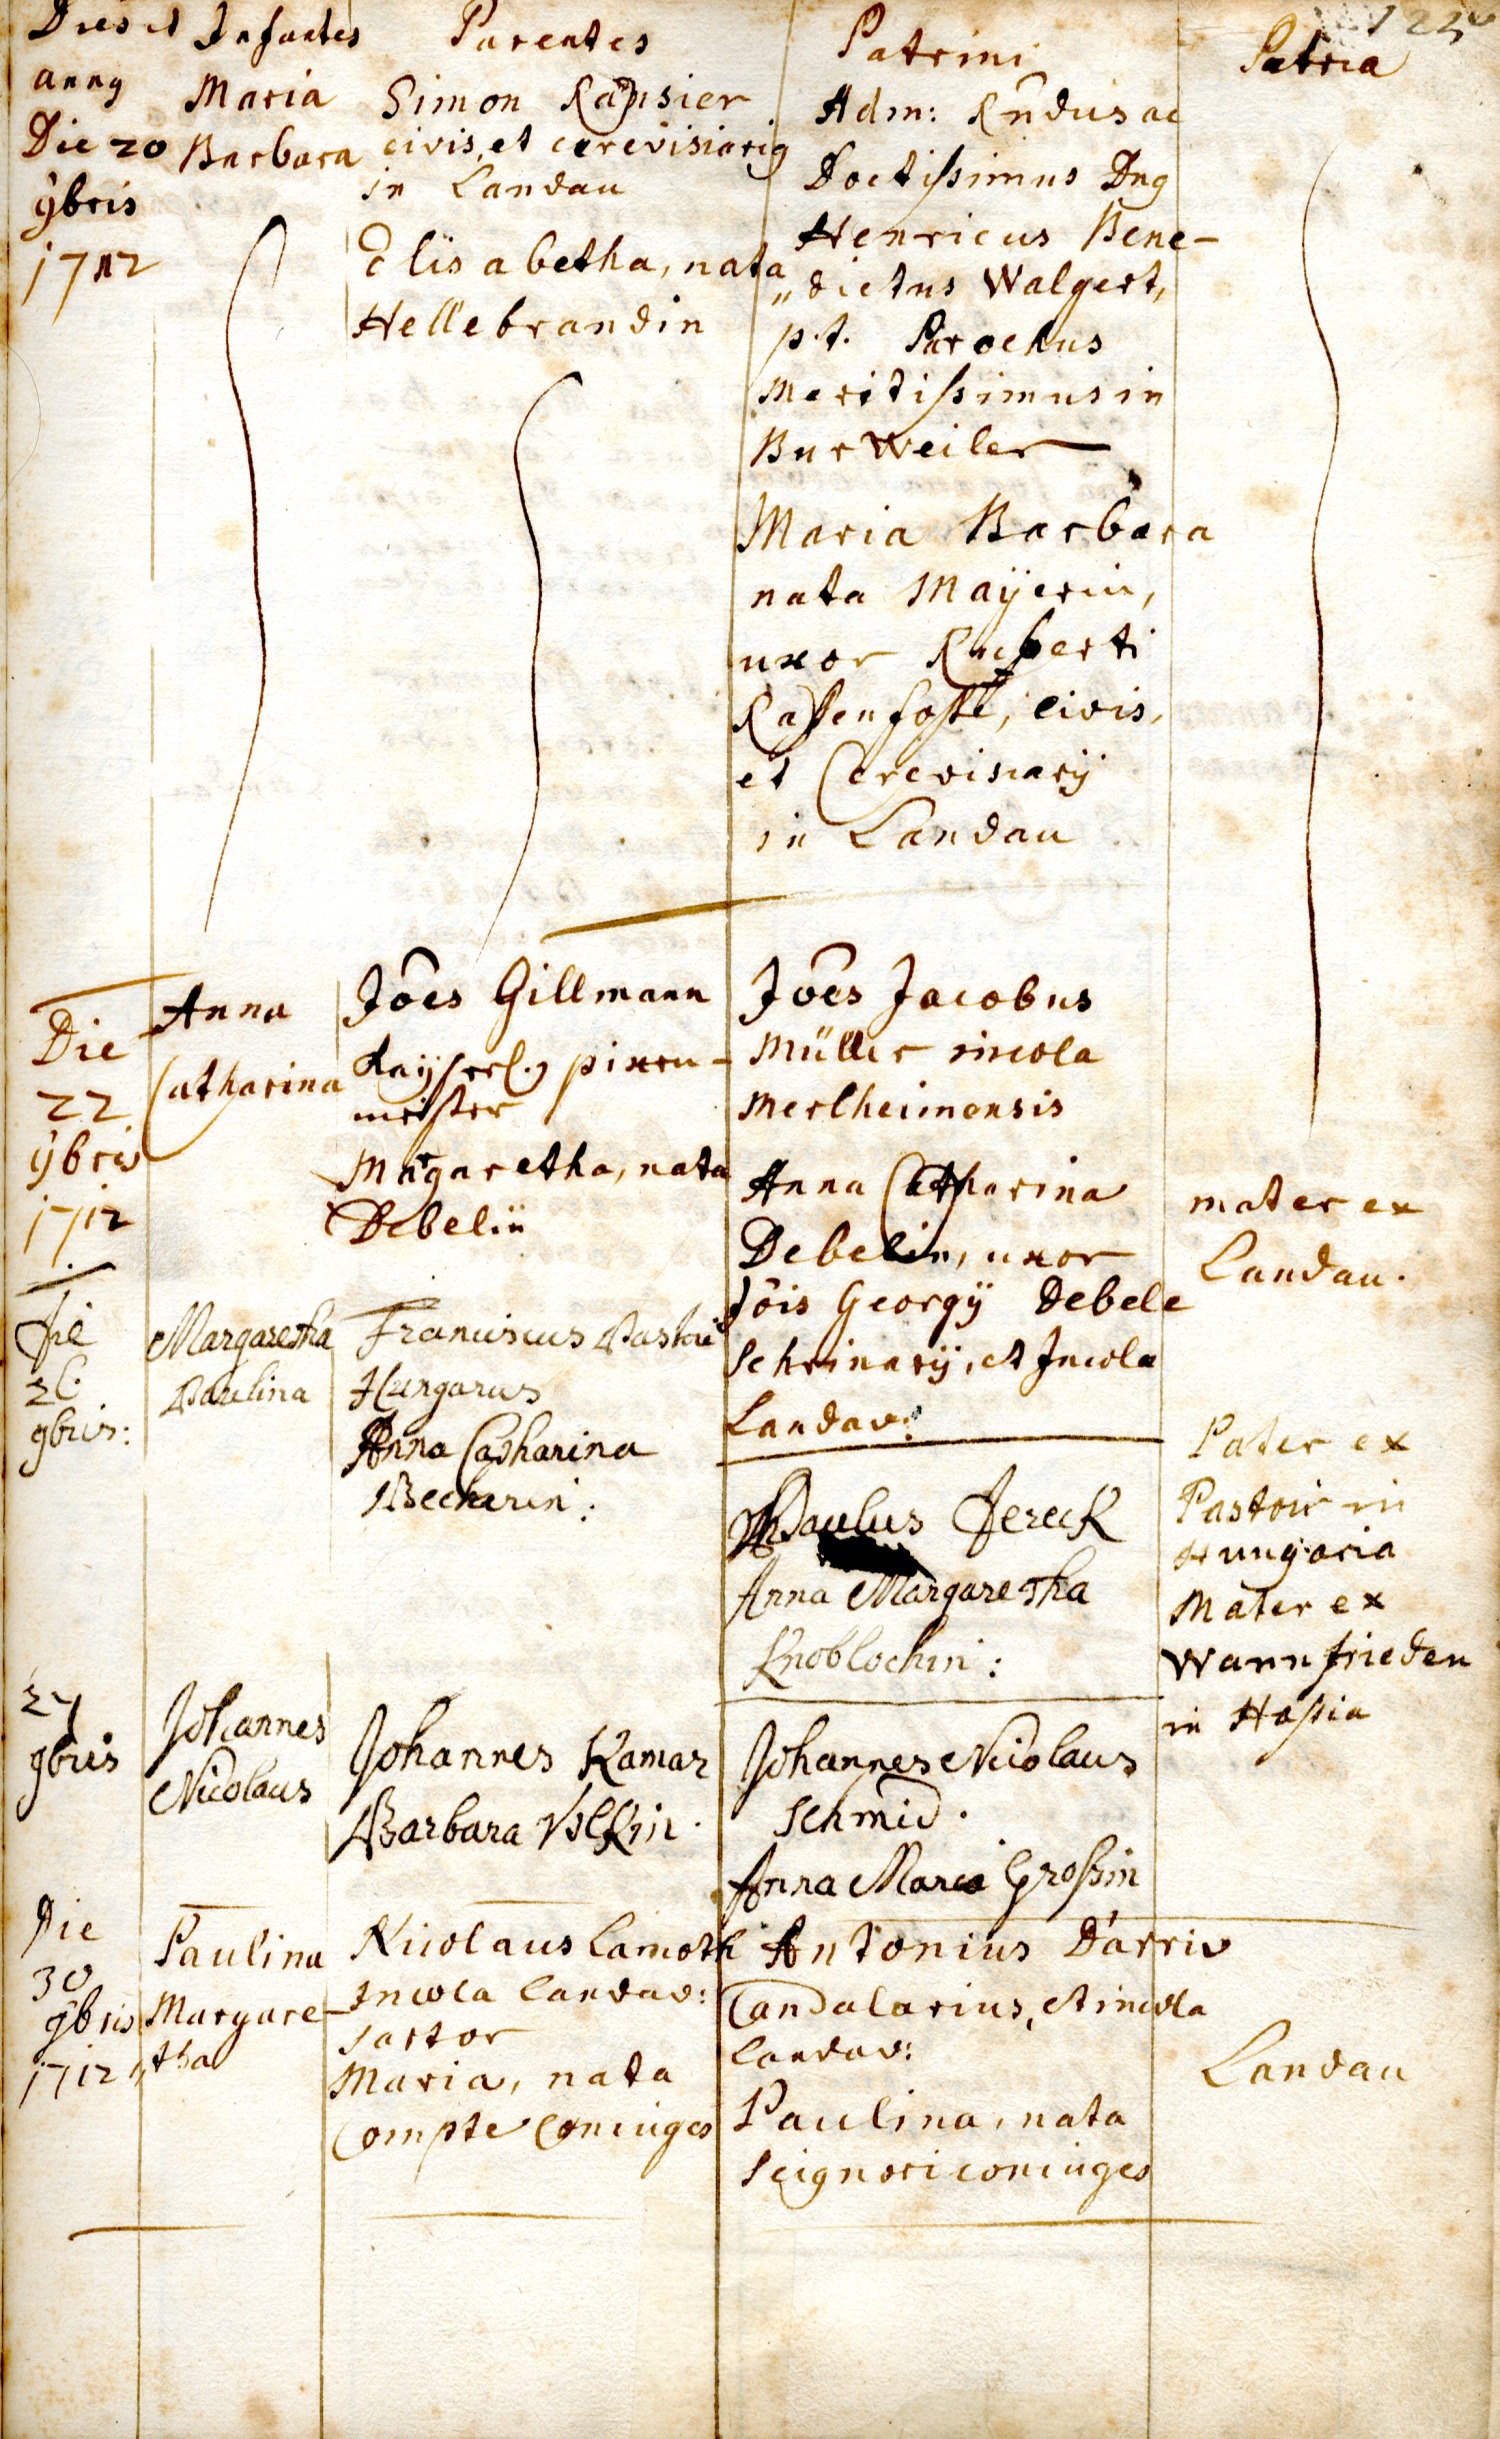 Dies et Infantes Parentes Patrini Patria
anny
Maria
Simon Rapsier
Adm: Rndus ac
Die 20
Barbara
civis, et cerevisiarig
Doctissimus Dng
9bris
in Landau
Henricus Bene-
1712
Elisabetha, nata
„dictus Walgert,
Hellebrandin
p.t. Parochus
Meritissimus in
Burweiler
Maria Barbara
nata Maÿerin,
uxor Ruperti
civis,
et Cerevisiarÿ
in Landau
Die
22
9bris
1712
Anna
Catharina
Jôes Gillmann
Kaÿserl. pixen-
meister
Margaretha, nata
Debelin
Jôes Jacobus
Müller incola
Merlheimensis
Anna Catharina
Debelin, uxor
Jôis Georgÿ Debele
Schrinarÿ, et Incola
Landav:
mater ex
Landau.
Die
26.
9bris:
Margaretha
Paulina
Franciscus Pastori
Hungarus
Anna Catharina
Beckerin:
Paulus Jereck
Anna Margaretha
Knoblochin:
Pater ex
Pastoir in
Hungaria
Mater ex
Wannfrieden
in Hassia
27
9bris
Johannes
Nicolaus
Johannes Kamar
Barbara Volkin.
Johannes Nicolaus
Schmid.
Anna Maria Grossin
Die
30
9bris
1712
Paulina
Margare-
„tha
Nicolaus Lamoth
Incola Landav:
sartor
Maria, nata
Compte Coniuges
Antonius D'arriv
Candalarius, et incola
Landav:
Paulina, nata
Seignori coniuges
Landau